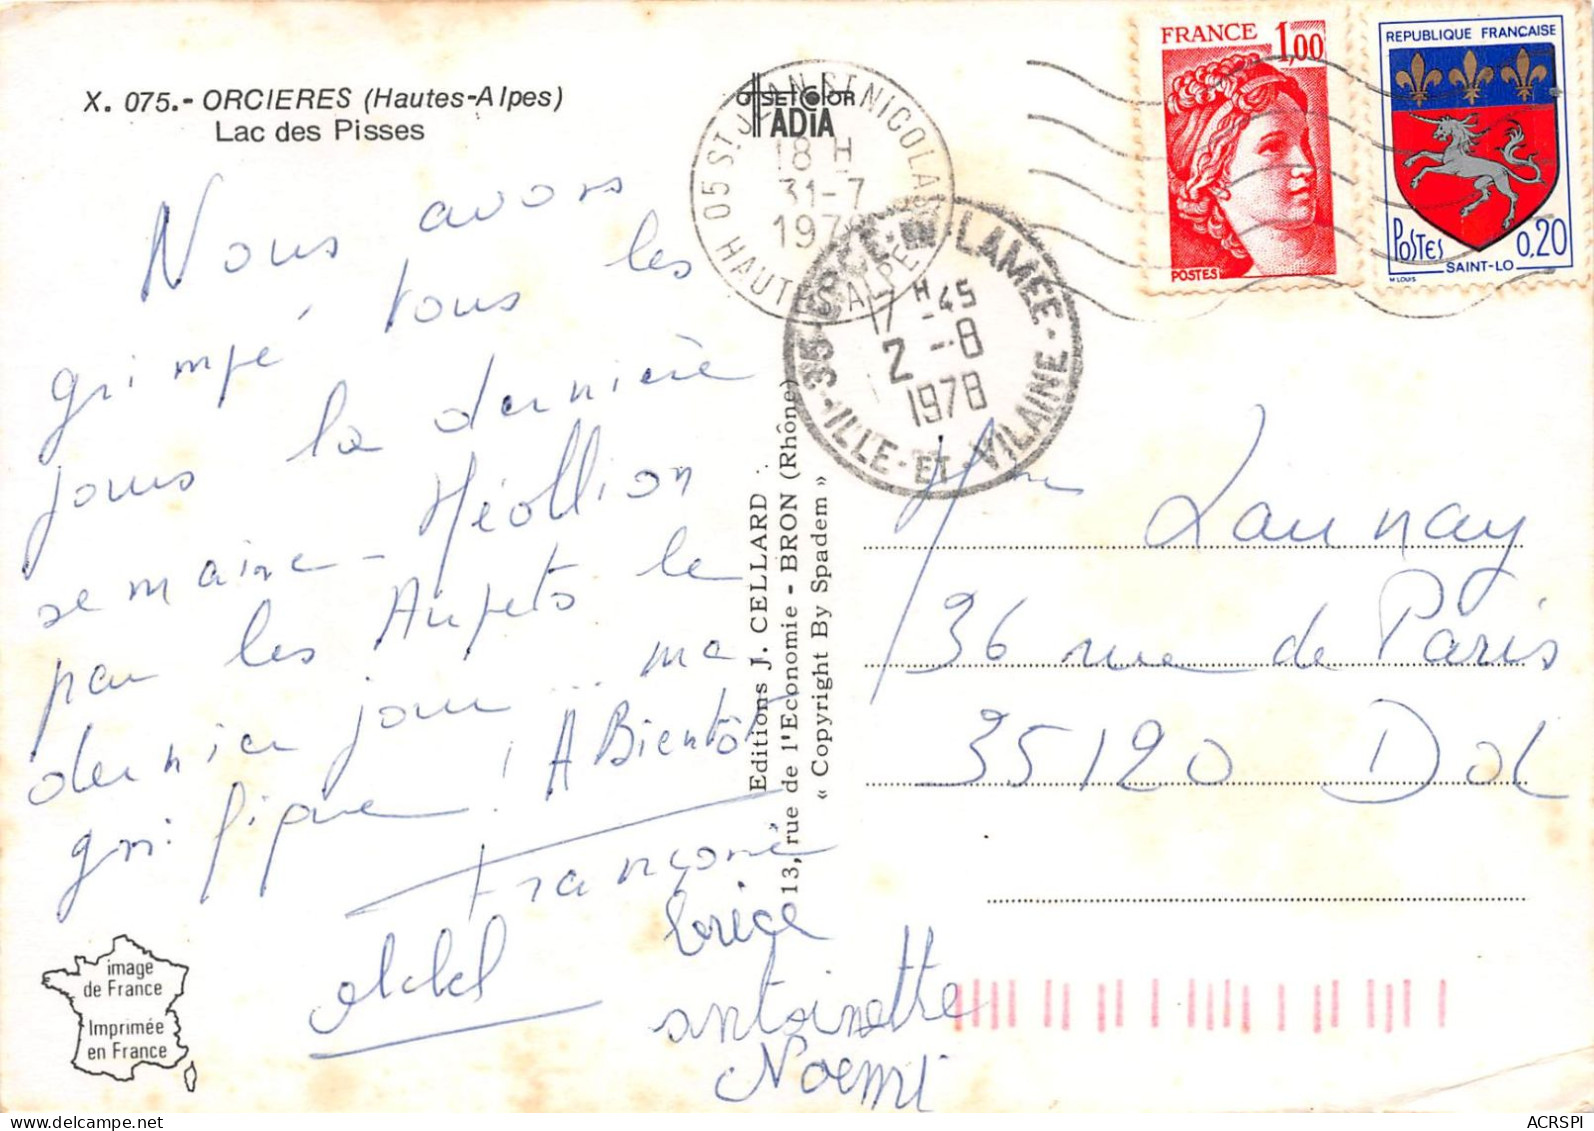 X. 075.- ORCIERES (Hautes-Alpes)
Lac des Pisses
Nous avons
grimpé tous les
jours la dernière
semaine - Méollion
par les Aupets le
dernier jour ... ma
gnifique ! A Bientôt
Françoise
Brice
antoinette
Noemi
image
de France
Imprimée
en France
Editions J. CELLARD
13, rue de l'Economie - BRON (Rhône)
« Copyright By Spadem »
OFFSETCOLOR
ADIA
05 ST JEAN ST NICOLAS
HAUTES ALPES
18 H
31-7
1978
LAMEE
35 - ILLE - ET - VILAINE -
17 H -45
2 -8
1978
FRANCE 1,00
POSTES
REPUBLIQUE FRANCAISE
POSTES 0,20
SAINT-LO
M LOUIS
Mme Launay
36 rue de Paris
35120 Dol
ACRSPI